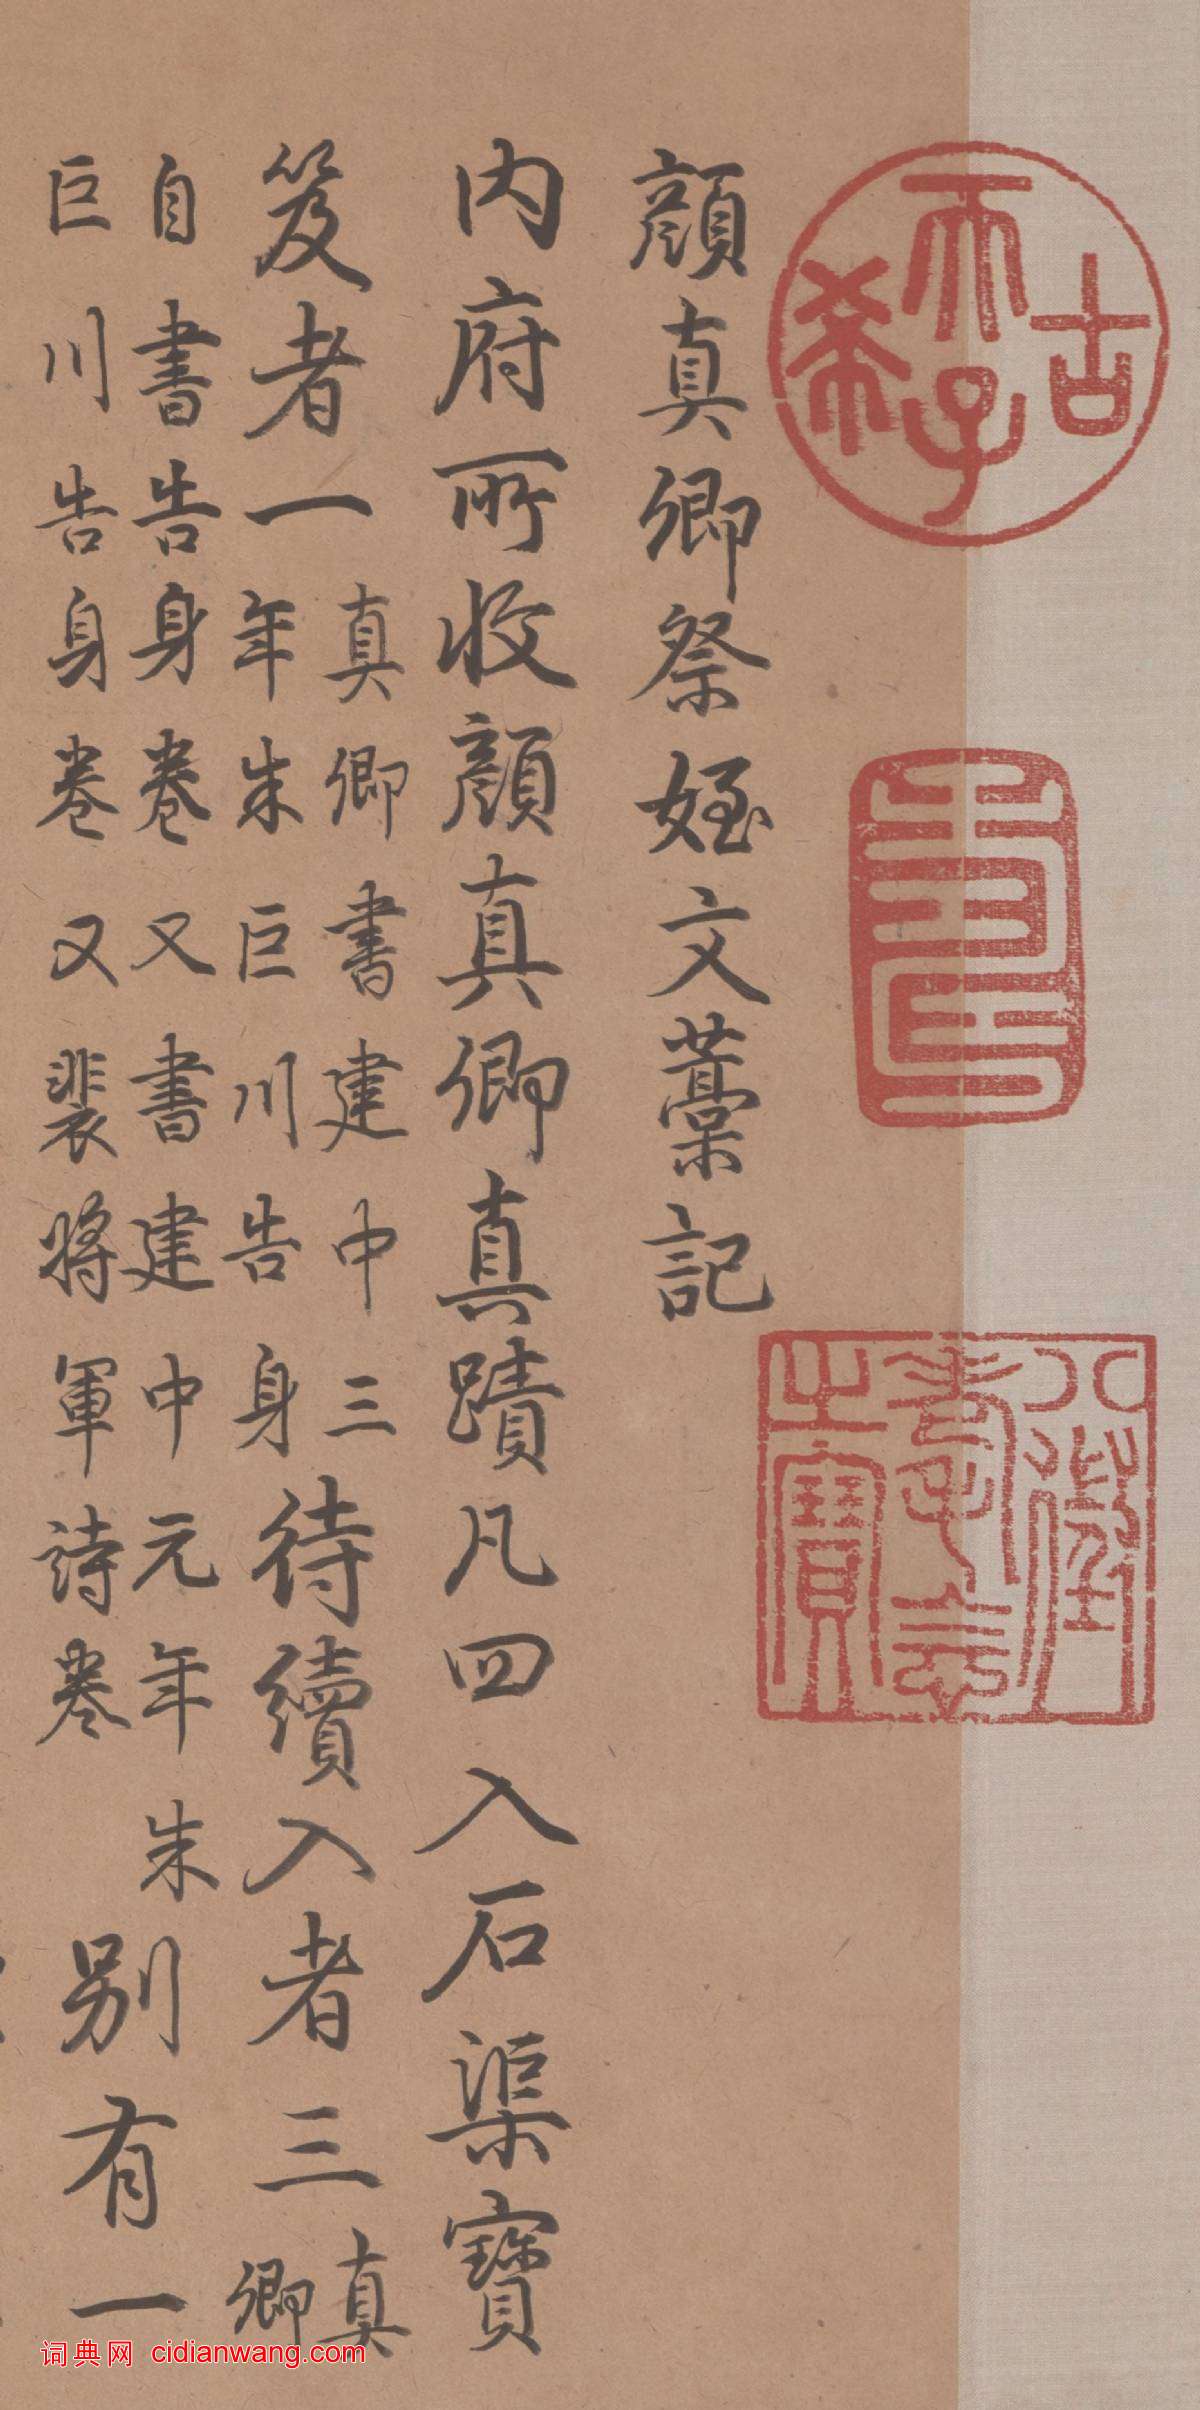 古希天子
壽
八徵耄念之寶
顔真卿祭姪文藁記
内府所收顔真卿真蹟凡四入石渠寶
笈者一真卿書建中三年朱巨川告身待續入者三真卿
自書告身卷又書建中元年朱巨川告身卷又裴將軍詩卷别有一
词典网 cidianwang.com